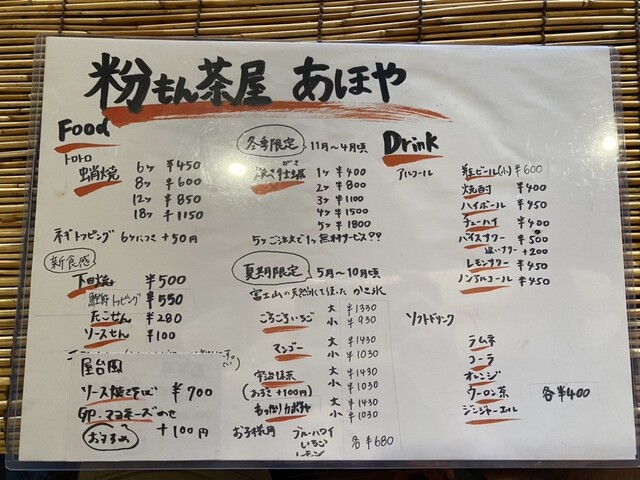 粉もん茶屋 あほや
Food
トロトロ
蛸焼 6ヶ ¥450
8ヶ ¥600
12ヶ ¥850
18ヶ ¥1150
ネギトッピング 6ヶにつき +50円
新食感
下田焼 ¥500
トッピング ¥550
たこせん ¥280
ソースせん ¥100
屋台風
ソース焼きそば ¥700
卵・マヨネーズのせ +100円
おすすめ
冬季限定 11月〜4月頃
がき
焼き 1ヶ ¥400
2ヶ ¥800
3ヶ ¥1100
4ヶ ¥1500
5ヶ ¥1800
5ヶご注文で1ヶ無料サービス??
夏期限定 5月〜10月頃
富士山の天然氷で使ったかき氷
ごろごろいちご 大 ¥1330
小 ¥930
マンゴー 大 ¥1430
小 ¥1030
宇治抹茶 大 ¥1430
(あずき+100円) 小 ¥1030
もっちりわらび 大 ¥1430
小 ¥1030
お子様用 ブルーハワイ
いちご 各¥680
レモン
Drink
アルコール
生ビール(小) ¥600
焼酎 ¥400
ハイボール ¥450
チューハイ ¥400
バイスサワー ¥500
追いサワー +200
レモンサワー ¥450
ノンアルコール ¥450
ソフトドリンク
ラムネ
コーラ
オレンジ
ウーロン茶 各¥400
ジンジャーエール